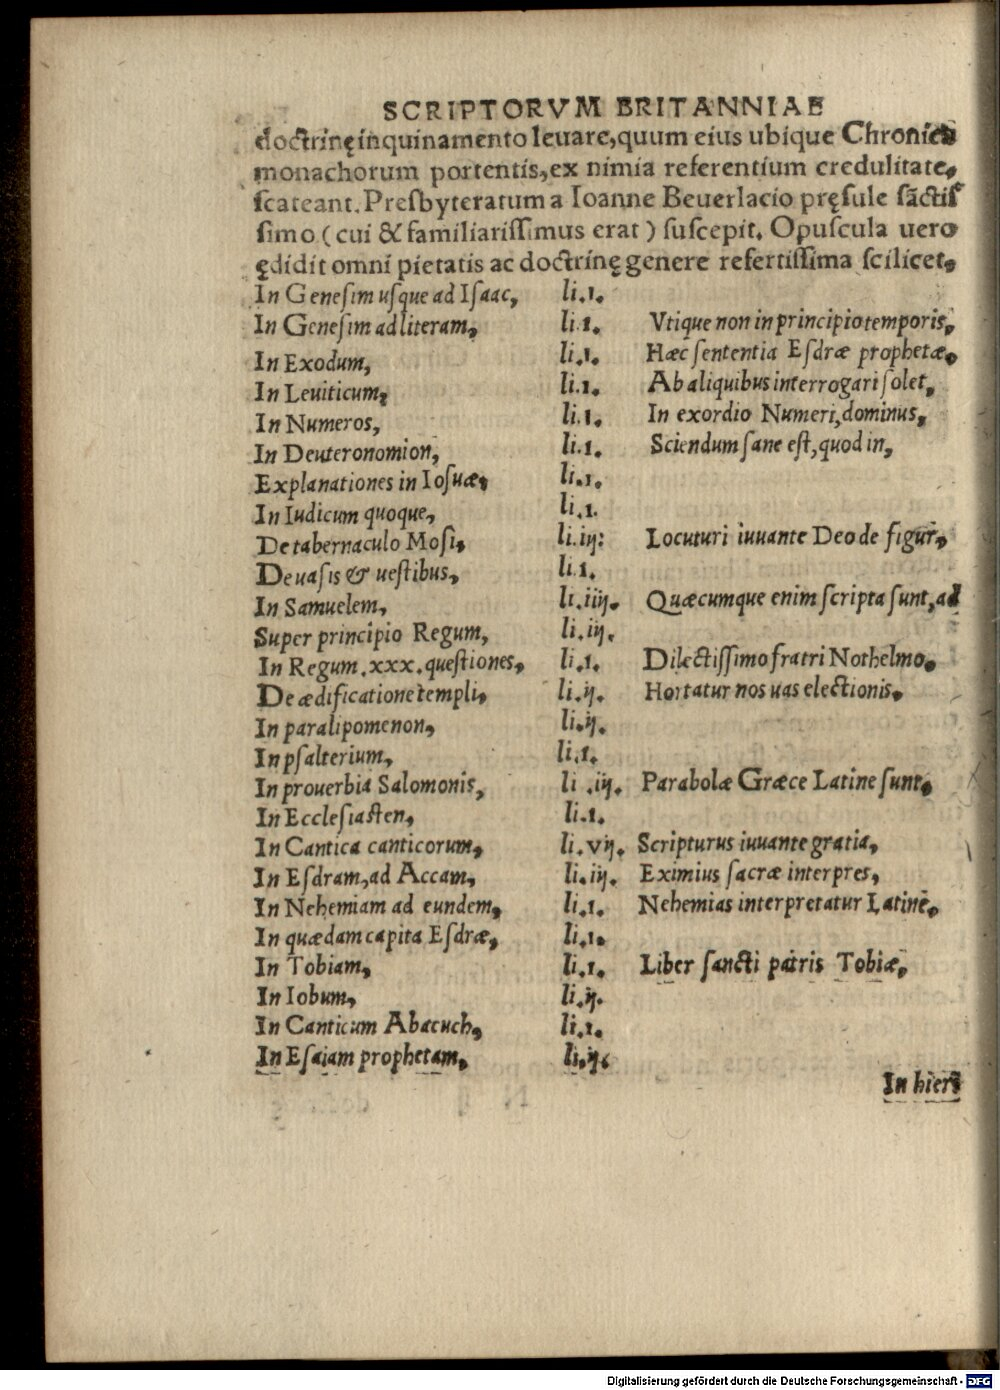 SCRIPTORVM BRITANNIAE
doctrinę inquinamento leuare, quum eius ubique Chronica
monachorum portentis, ex nimia referentium credulitate,
ſcateant. Preſbyteratum a Ioanne Beuerlacio pręſule ſāctiſ
ſimo (cui & familiariſſimus erat) ſuſcepit. Opuſcula uero
ędidit omni pietatis ac doctrinę genere refertiſſima ſcilicet,
In Geneſim uſque ad Iſaac, li.1.
In Geneſim ad literam, li.1. Vtique non in principio temporis,
In Exodum, li.1. Hæc ſententia Eſdræ prophetæ,
In Leuiticum, li.1. Ab aliquibus interrogari ſolet,
In Numeros, li.1. In exordio Numeri, dominus,
In Deuteronomion, li.1. Sciendum ſane eſt, quod in,
Explanationes in Ioſuæ, li.1.
In Iudicum quoque, li.1.
De tabernaculo Moſi, li.iij: Locuturi iuuante Deo de figur,
De uaſis & ueſtibus, li.1.
In Samuelem, li.iiij. Quæcumque enim ſcripta ſunt, ad
Super principio Regum, li.iij.
In Regum .xxx. queſtiones, li.1. Dilectiſſimo fratri Nothelmo,
De ædificatione templi, li.ij. Hortatur nos uas electionis,
In paralipomenon, li.ij.
In pſalterium, li.1.
In prouerbia Salomonis, li .iij. Parabolæ Græce Latine ſunt,
In Eccleſiaſten, li.1.
In Cantica canticorum, li.vij. Scripturus iuuante gratia,
In Eſdram, ad Accam, li.iij. Eximius ſacræ interpres,
In Nehemiam ad eundem, li.1. Nehemias interpretatur Latine,
In quædam capita Eſdræ, li.1.
In Tobiam, li.1. Liber ſancti patris Tobiæ,
In Iobum, li.ij.
In Canticum Abacuch, li.1.
In Eſaiam prophetam, li.ij.
In hiere
Digitalisierung gefördert durch die Deutsche Forschungsgemeinschaft - DFG